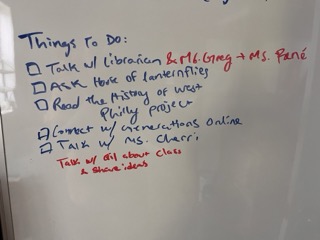 Things To Do:
Talk w/ Librarian & Ms. Greg + Ms. René
Ask Horse of lanternflies
Read the History of West
Philly project
Connect w/ Generations Online
Talk w/ Ms. Cherri
Talk w/ all about class
& share ideas